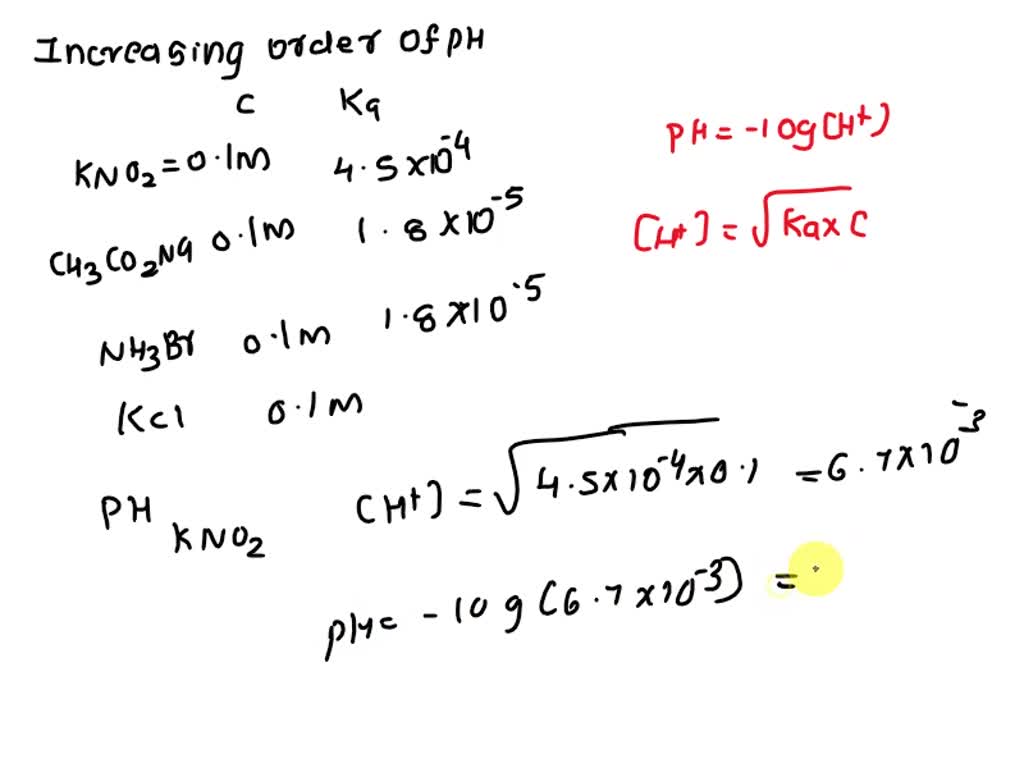 Increasing order of pH
C Ka
KNO2 = 0.1m 4.5x10^-4
CH3CO2Na 0.1m 1.8x10^-5
NH3Br 0.1m 1.8x10^-5
KCl 0.1m
PH = -log[H+)
[H+] = √Kaxc
PH KNO2
[H+] = √4.5x10^-4x0.1 = 6.7x10^-3
pH= -log(6.7x10^-3) =